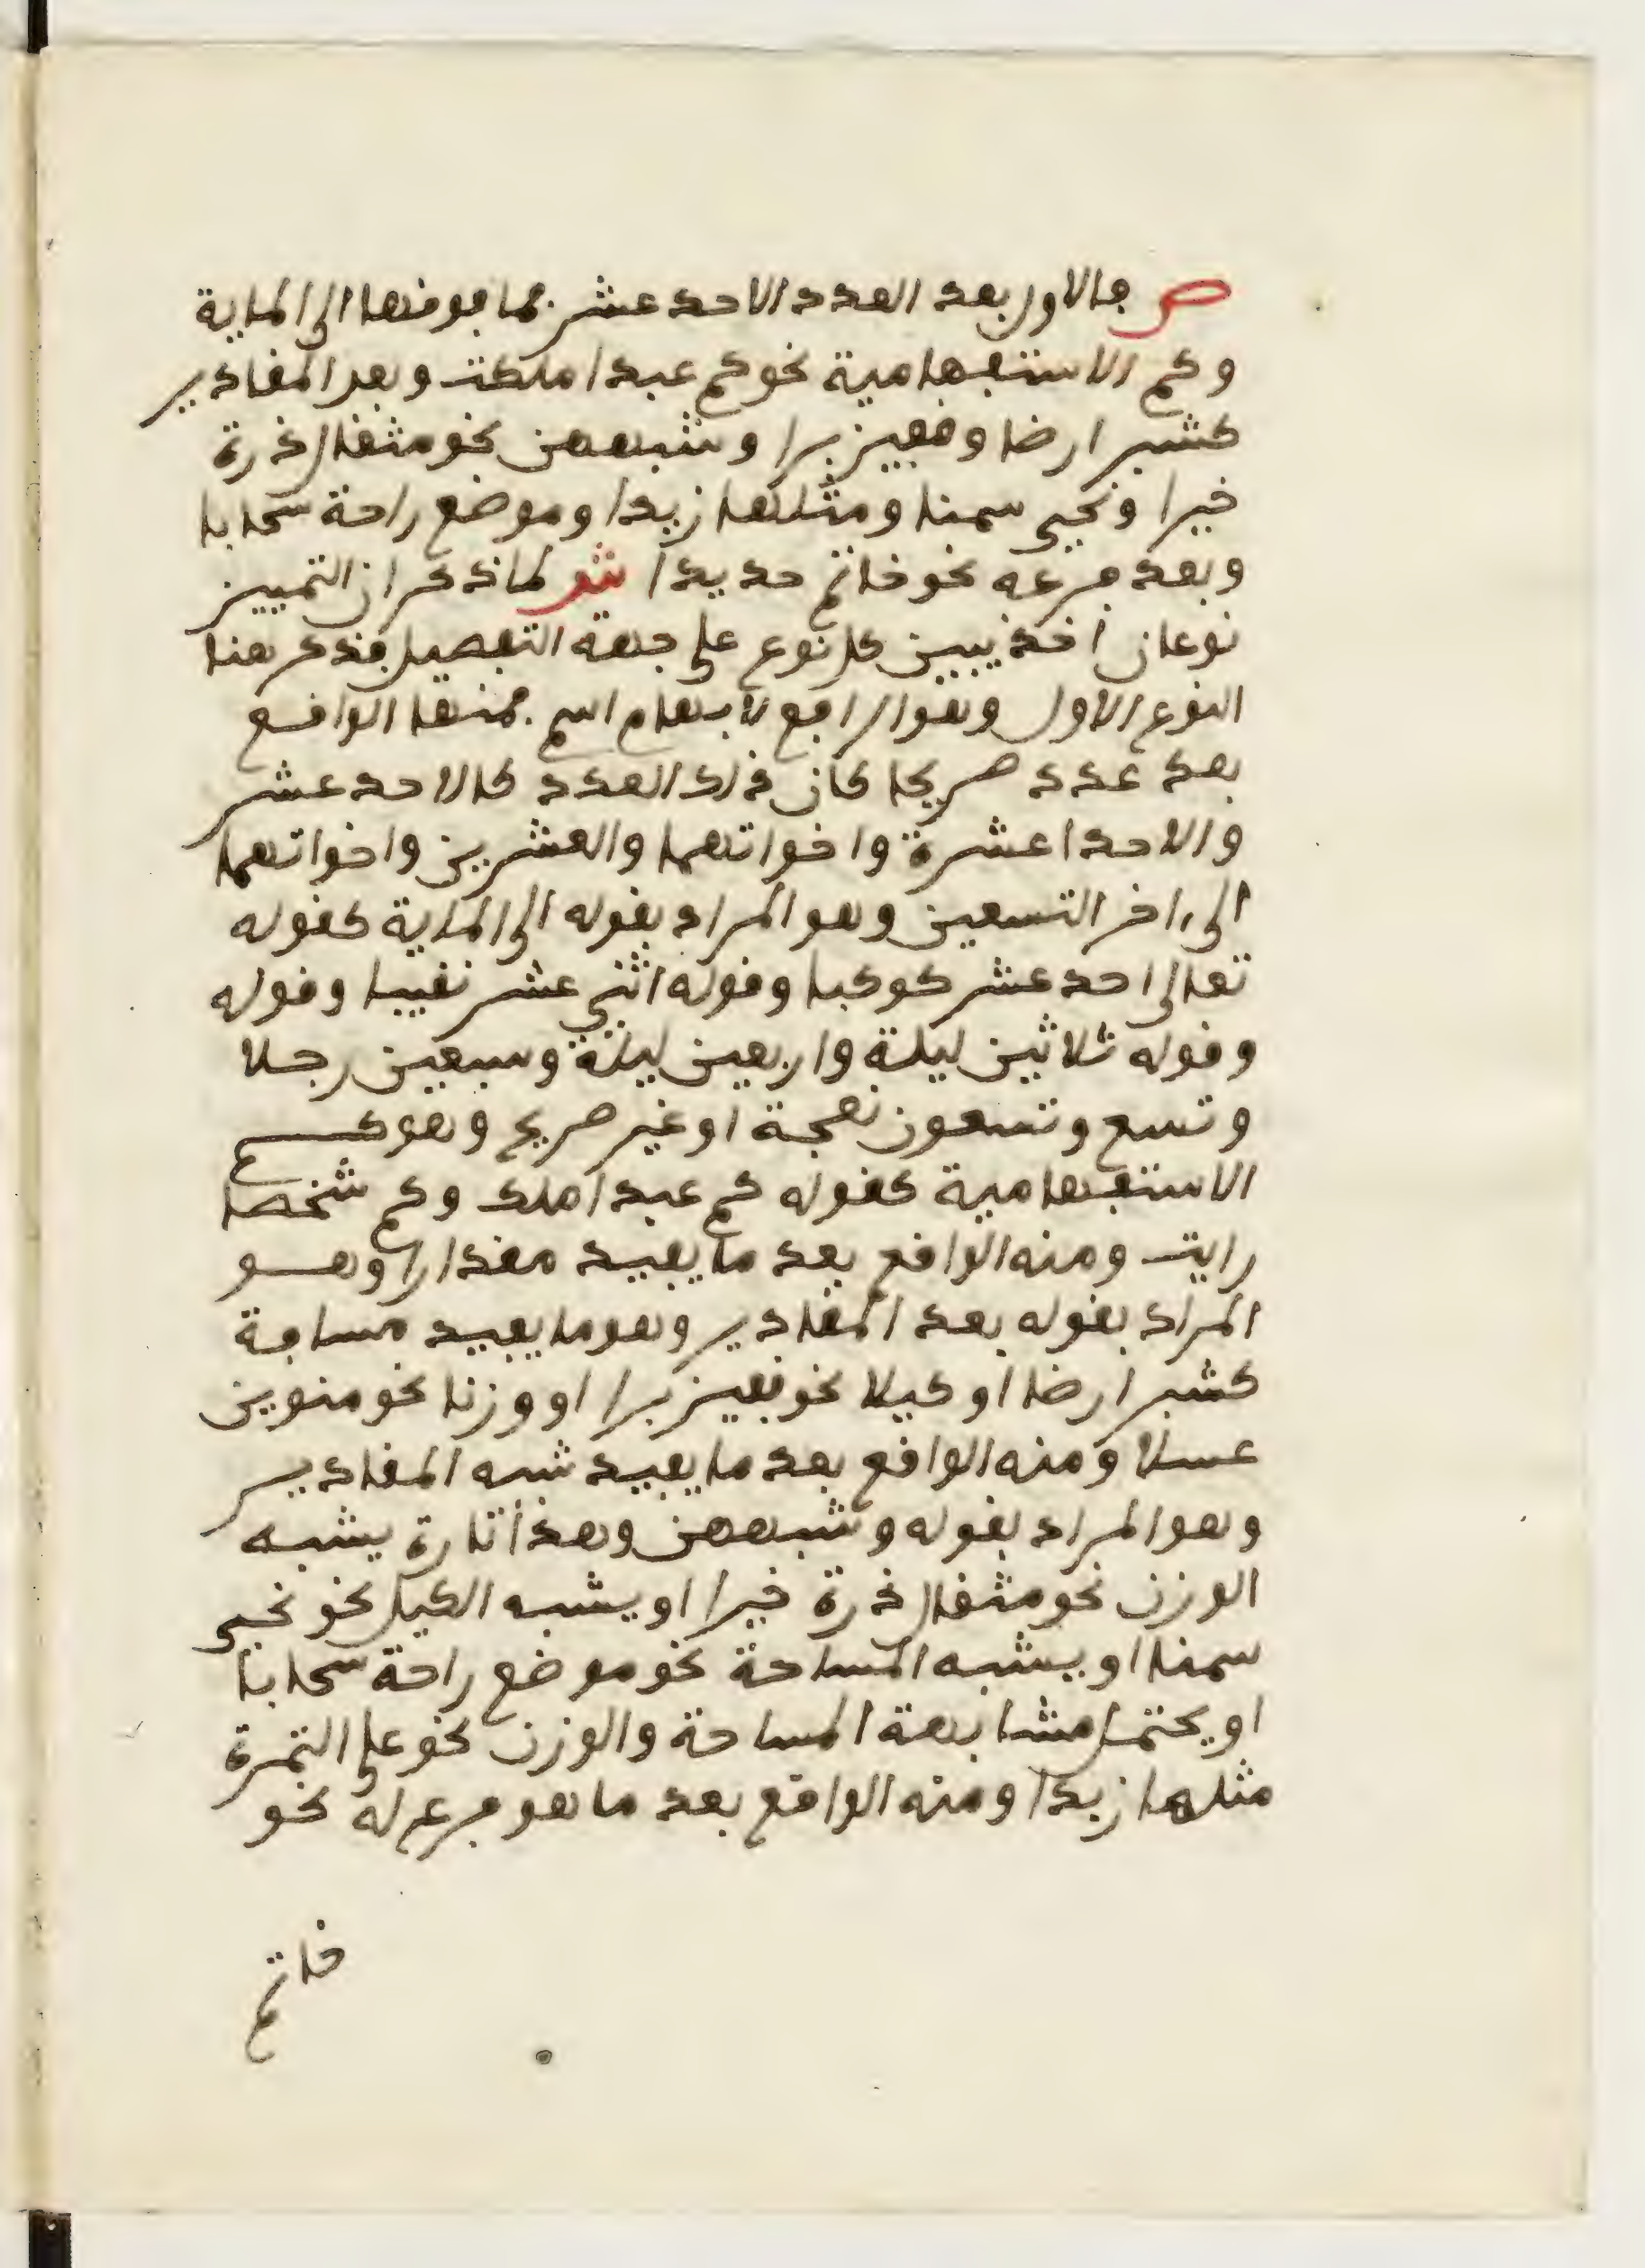 ص فالاول بعد العدد الاحد عشر فما فوقها الى الماية
وكم الاستفهامية نحو كم عبدا ملكت وبعد المقادير
كشبر ارضا وقفيز برا وشبههن نحو مثقال ذرة
خيرا ونحيي سمنا ومثلها زبدا وموضع راحة سحابا
وبعد فرعه نحو خاتم حديدا ش لما ذكر ان التمييز
نوعان اخذ يبين كل نوع على جهة التفصيل فذكر هنا
النوع الاول وهو الرافع لابهام اسم فمنها الواقع
بعد عدد صريحا كان ذلك العدد كالاحد عشر
والاحدا عشرة واخواتهما والعشرين واخواتهما
الى اخر التسعين وهو المراد بقوله الى الماية كقوله
تعالى احد عشر كوكبا وقوله اثني عشر نقيبا وقوله
وقوله ثلاثين ليلة واربعين ليلة وسبعين رجلا
وتسع وتسعون نعجة او غير صريح وهو كم
الاستفهامية كقوله كم عبدا ملك وكم شخصا
رايت ومنه الواقع بعد ما يفيد مقدارا وهو
المراد بقوله بعد المقادير وهو ما يفيد مسافة
كشبر ارضا او كيلا نحو قفيز برا او وزنا نحو منوين
عسلا ومنه الواقع بعد ما يفيد شبه المقادير
وهو المراد بقوله وشبههن وهذا تارة يشبه
الوزن نحو مثقال ذرة خيرا او يشبه الكيل نحو نحيي
سمنا او يشبه المساحة نحو موضع راحة سحابا
او يحتمل مشابهة المساحة والوزن نحو على التمرة
مثلها زبدا ومنه الواقع بعد ما هو فرع له نحو
خاتم